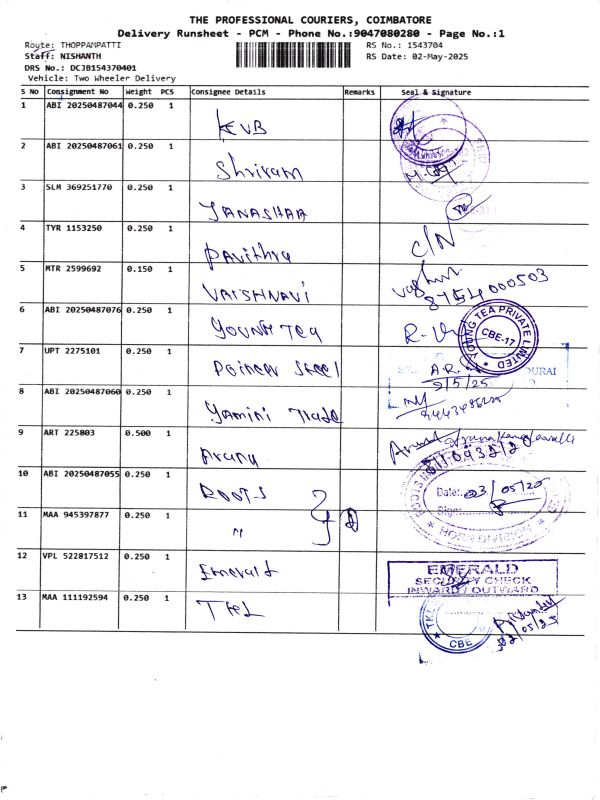 THE PROFESSIONAL COURIERS, COIMBATORE
Delivery Runsheet - PCM - Phone No.:9047080280 - Page No.:1
Route: THOPPAMPATTI RS No.: 1543704
Staff: NISHANTH RS Date: 02-May-2025
DRS No.: DCJB154370401
Vehicle: Two Wheeler Delivery
S No Consignment No Weight PCS Consignee Details Remarks Seal & Signature
1 ABI 20250487044 0.250 1
KVB
2 ABI 20250487061 0.250 1
Shriram
3 SLM 369251770 0.250 1
JANASHAA
4 TYR 1153250 0.250 1
Pavithra C/N
5 MTR 2599692 0.150 1
VAISHNAVI 8754000503
6 ABI 20250487076 0.250 1
YOUNG TEA
YOUNG TEA PRIVATE LIMITED
CBE-17
7 UPT 2275101 0.250 1
Poineer Steel A.R.
2/5/25
8 ABI 20250487060 0.250 1
Yamini Trade
9 ART 225803 0.500 1
Aruna
10 ABI 20250487055 0.250 1
ROOTS
Date: 03/05/25
Sign:
HORN DIVISION
11 MAA 945397877 0.250 1
"
12 VPL 522817512 0.250 1
Emerald
EMERALD
SECURITY CHECK
INWARD / OUTWARD
13 MAA 111192594 0.250 1
TKL
CBE
02/05/25